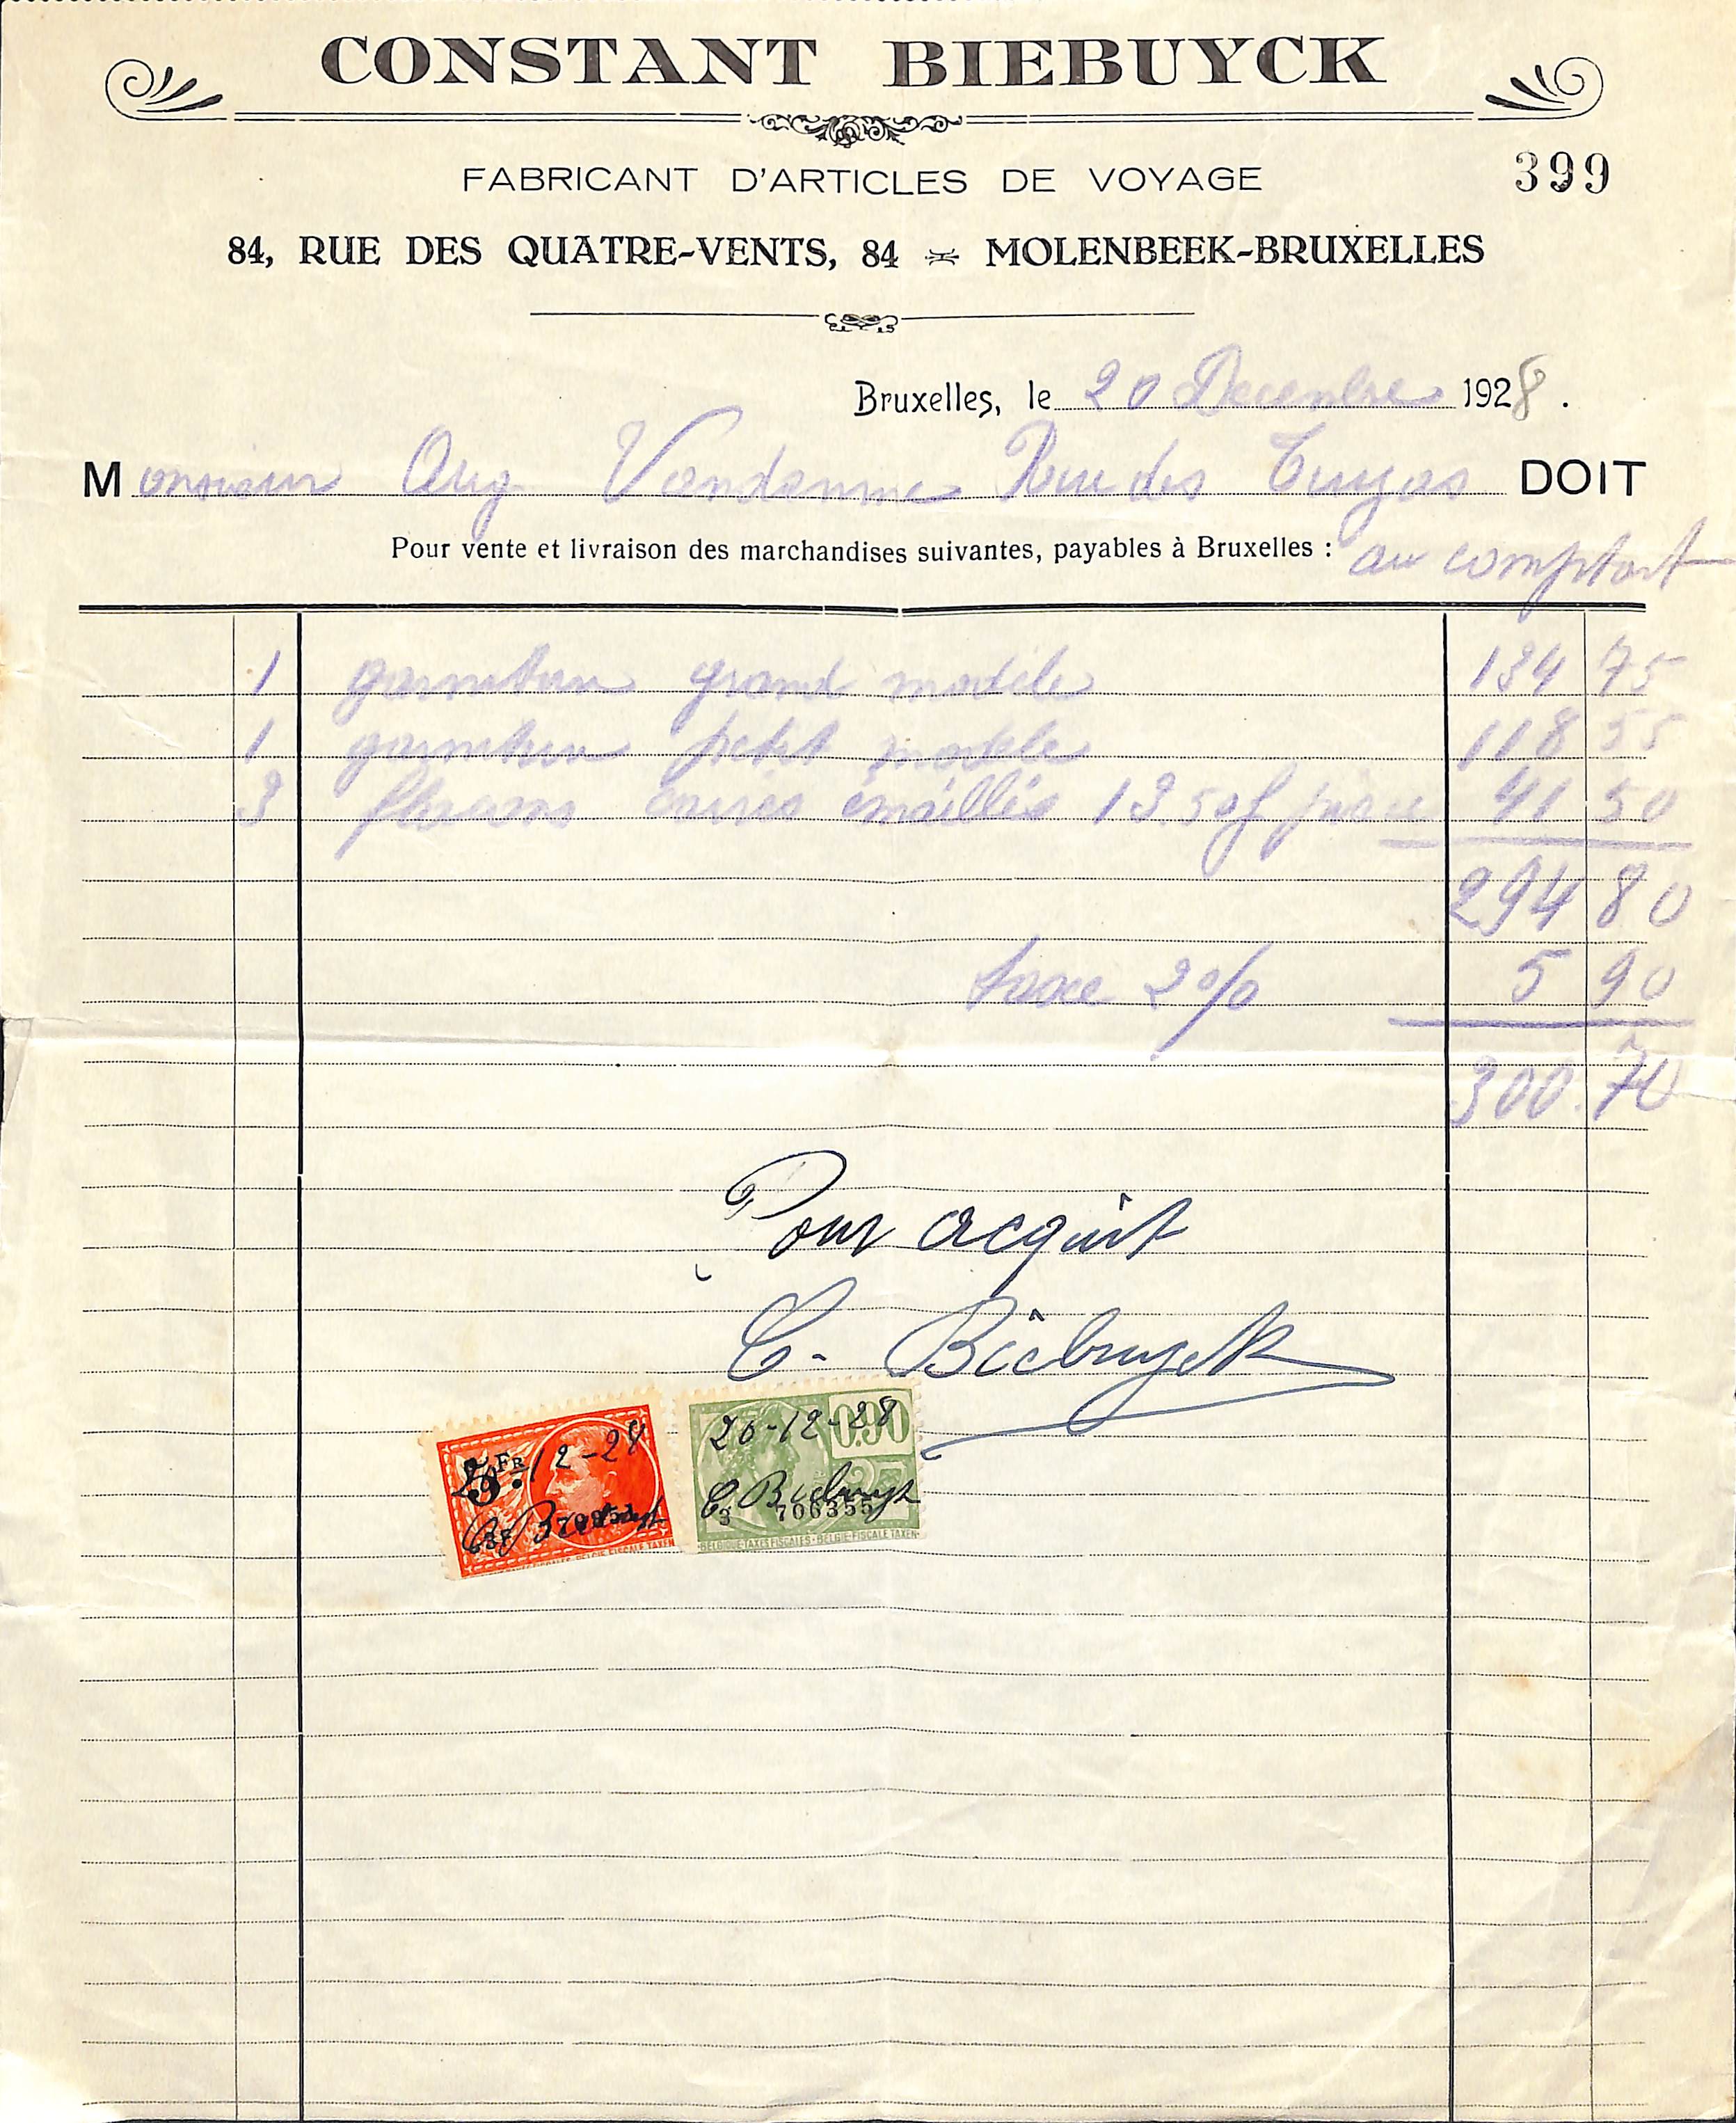 CONSTANT BIEBUYCK
FABRICANT D'ARTICLES DE VOYAGE
399
84, RUE DES QUATRE-VENTS, 84 MOLENBEEK-BRUXELLES
Bruxelles, le 20 Decembre 1928.
Monsieur Aug Vandamme Rue des DOIT
Pour vente et livraison des marchandises suivantes, payables à Bruxelles : au comptant
1 garniture grand modèle 134 75
1 garniture petit modèle 118 55
3 flacons émaillés 13.50 f pièce 41 50
294 80
taxe 2% 5 90
300.70
Pour acquit
C. Biebuyck
5 FR 12-28
20-12-28 0.90
C. Biebuyck
706355
BELGIQUE-TAXES FISCALES-BELGIE-FISCALE TAXEN